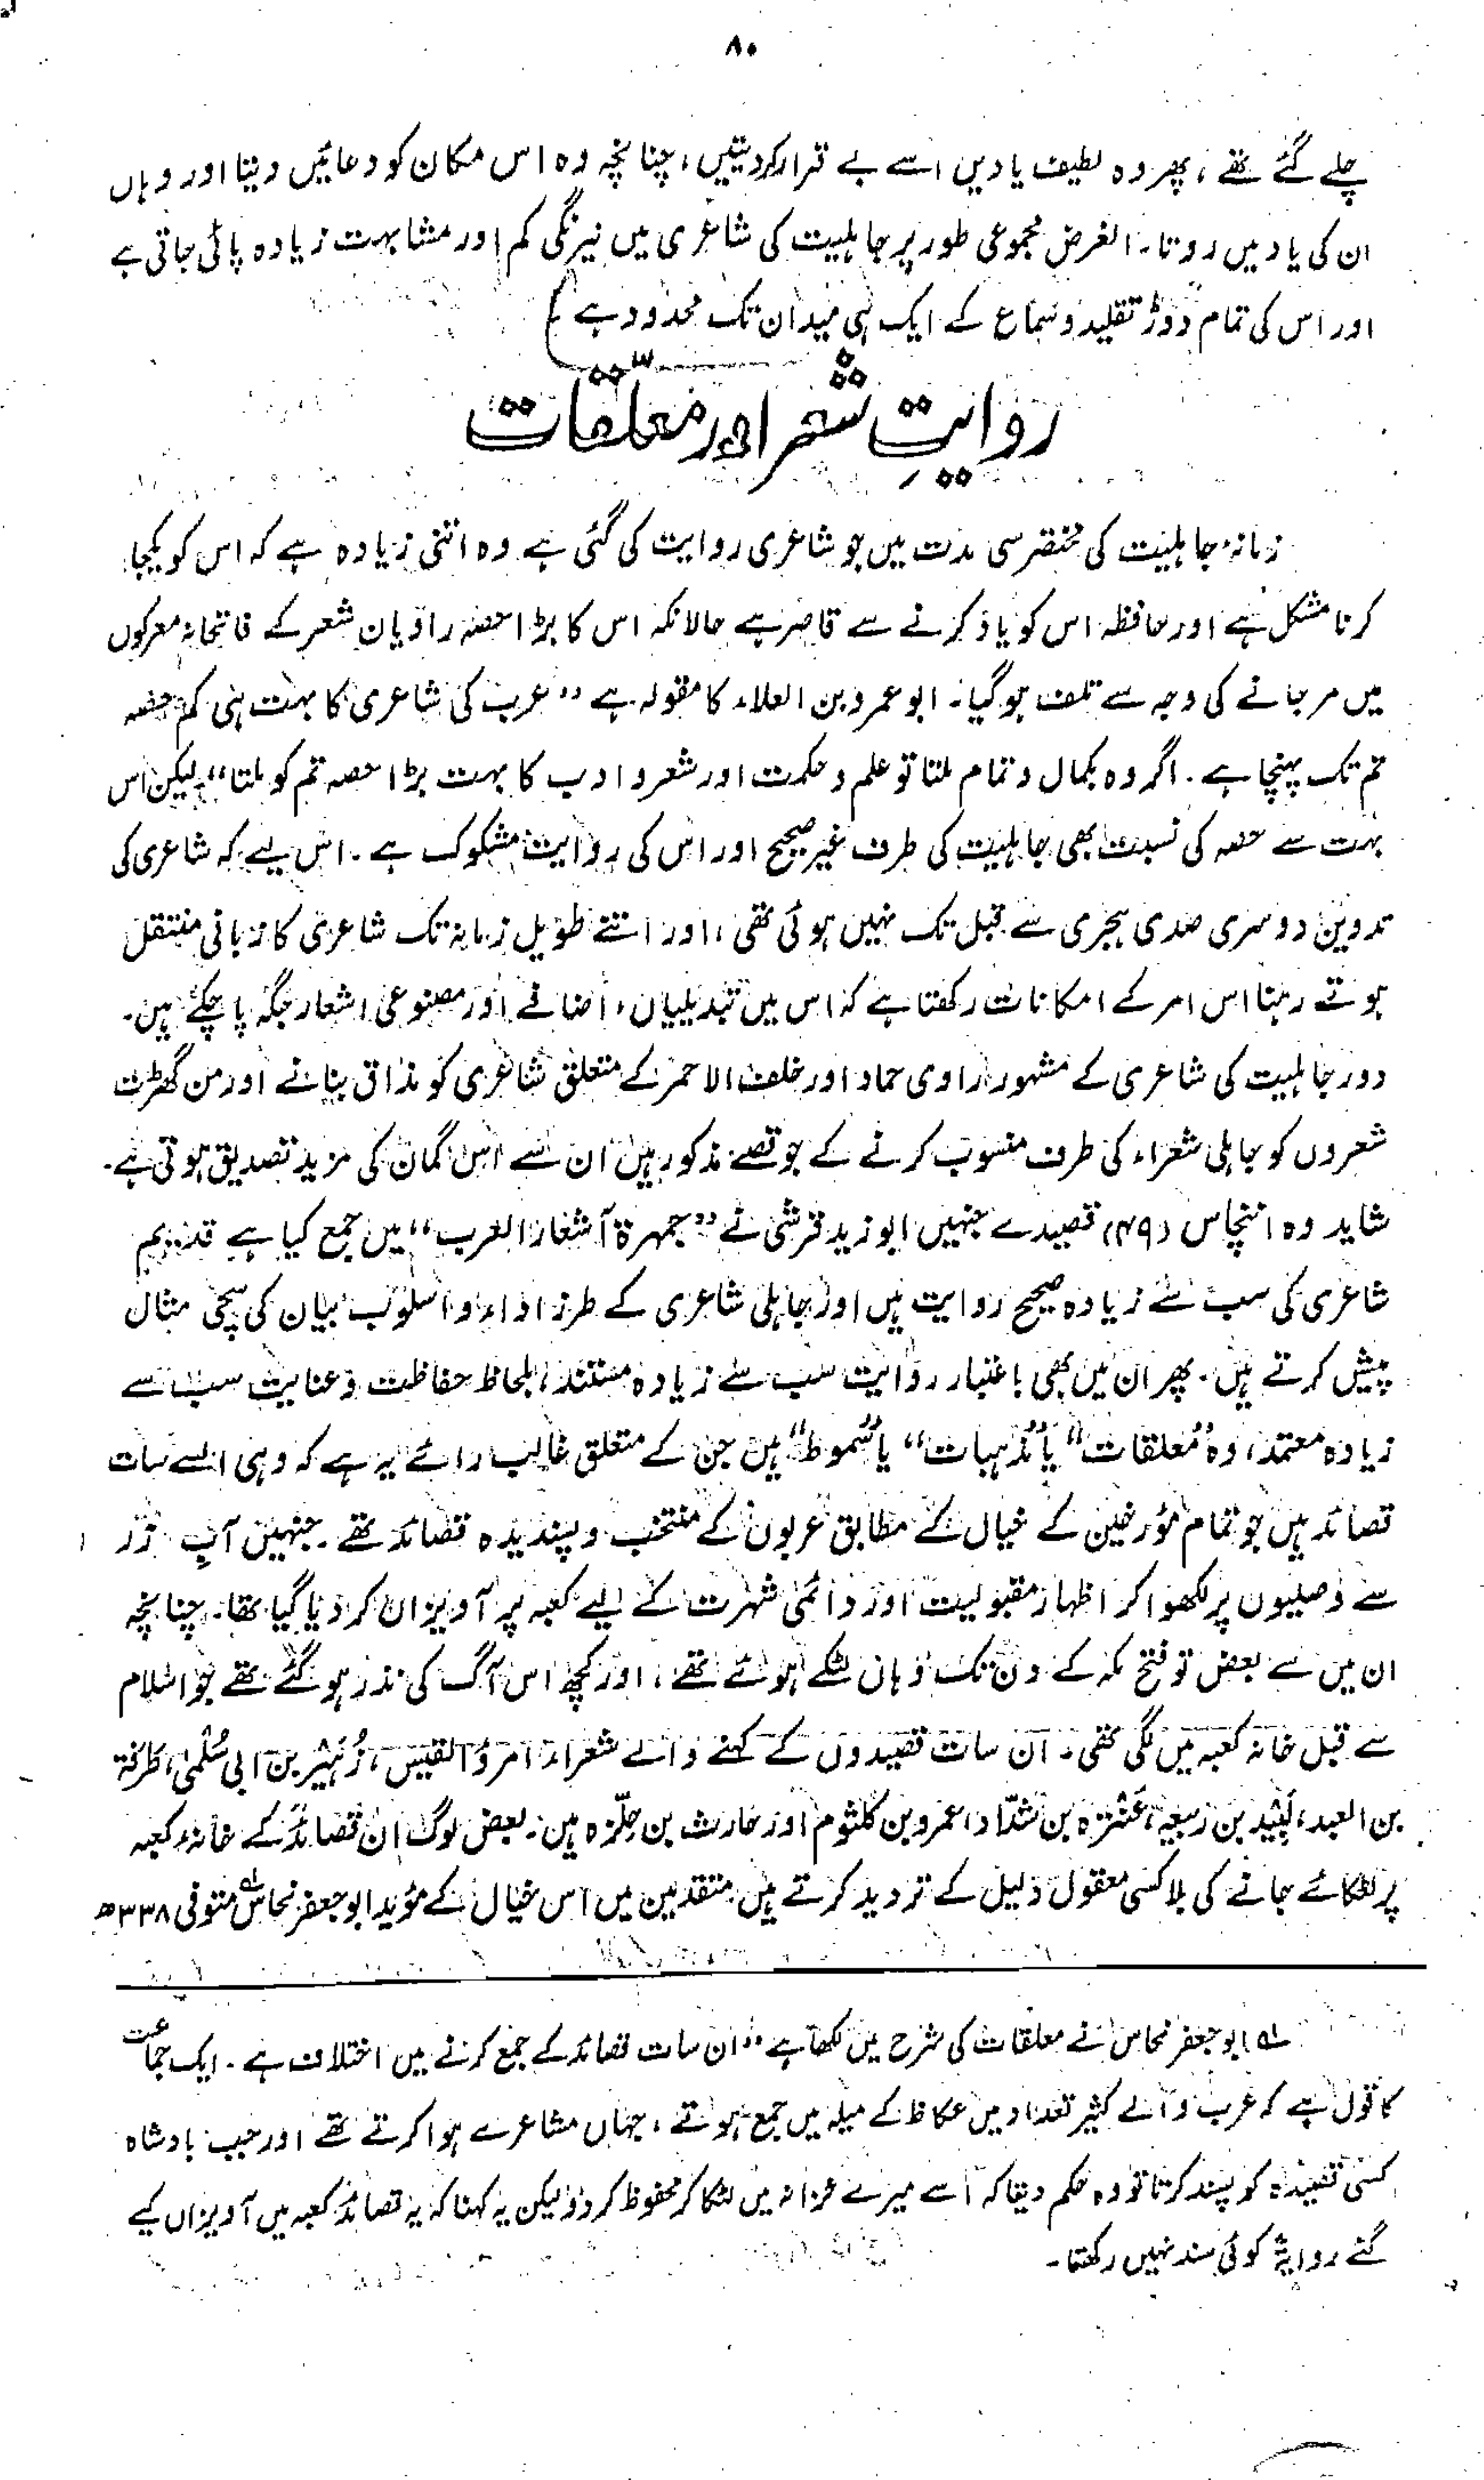 ۸۰
چلے گئے تھے، پھر وہ لطیف یادیں اسے بے قرار کر دیتیں، چنانچہ وہ اس مکان کو دعائیں دیتا اور وہاں
ان کی یاد میں روتا۔ الغرض مجموعی طور پر جاہلیت کی شاعری میں نیرنگی کم اور مشابہت زیادہ پائی جاتی ہے
اور اس کی تمام دوڑ تقلید و سماع کے ایک ہی میدان تک محدود ہے
روایتِ شعر اور معلّقات
زمانۂ جاہلیت کی مختصر سی مدت میں جو شاعری روایت کی گئی ہے وہ اتنی زیادہ ہے کہ اس کو یکجا
کرنا مشکل ہے اور حافظہ اس کو یاد کرنے سے قاصر ہے حالانکہ اس کا بڑا حصہ راویان شعر کے فاتحانہ معرکوں
میں مر جانے کی وجہ سے تلف ہو گیا۔ ابو عمرو بن العلاء کا مقولہ ہے ”عرب کی شاعری کا بہت ہی کم حصہ
تم تک پہنچا ہے۔ اگر وہ بکمال و تمام ملتا تو علم و حکمت اور شعر و ادب کا بہت بڑا حصہ تم کو ملتا“ لیکن اس
بہت سے حصہ کی نسبت بھی جاہلیت کی طرف غیر صحیح اور اس کی روایت مشکوک ہے۔ اس لیے کہ شاعری کی
تدوین دوسری صدی ہجری سے قبل تک نہیں ہوئی تھی، اور اتنے طویل زمانہ تک شاعری کا زبانی منتقل
ہوتے رہنا اس امر کے امکانات رکھتا ہے کہ اس میں تبدیلیاں، اضافے اور مصنوعی اشعار جگہ پا چکے ہیں۔
دور جاہلیت کی شاعری کے مشہور راوی حماد اور خلف الاحمر کے متعلق شاعری کو مذاق بنانے اور من گھڑت
شعروں کو جاہلی شعراء کی طرف منسوب کرنے کے جو قصے مذکور ہیں ان سے اس گمان کی مزید تصدیق ہوتی ہے۔
شاید وہ انچاس (۴۹) قصیدے جنہیں ابو زید قرشی نے ”جمہرۃ أشعار العرب“ میں جمع کیا ہے قدیم
شاعری کی سب سے زیادہ صحیح روایت ہیں اور جاہلی شاعری کے طرز اداء و اسلوب بیان کی سچی مثال
پیش کرتے ہیں۔ پھر ان میں بھی باعتبار روایت سب سے زیادہ مستند، بلحاظ حفاظت و عنایت سب سے
زیادہ معتمد، وہ ”مُعلقات“ یا ”مُذہبات“ یا ”سُموط“ ہیں جن کے متعلق غالب رائے یہ ہے کہ وہی ایسے سات
قصائد ہیں جو تمام مؤرخین کے خیال کے مطابق عربوں کے منتخب و پسندیدہ قصائد تھے۔ جنہیں آبِ زر
سے وصلیوں پر لکھوا کر اظہار مقبولیت اور دائمی شہرت کے لیے کعبہ پر آویزاں کر دیا گیا تھا۔ چنانچہ
ان میں سے بعض تو فتح مکہ کے دن تک وہاں لٹکے ہوئے تھے، اور کچھ اس آگ کی نذر ہو گئے تھے جو اسلام
سے قبل خانہ کعبہ میں لگی تھی۔ ان سات قصیدوں کے کہنے والے شعراء امرؤ القیس، زُہَیر بن ابی سُلمیٰ، طَرَفۃ
بن العبد، لَبِید بن رَبیعہ، عَنترہ بن شدّاد، عمرو بن کلثوم اور حارث بن حِلّزہ ہیں۔ بعض لوگ ان قصائد کے خانۂ کعبہ
پر لٹکائے جانے کی بلا کسی معقول دلیل کے تردید کرتے ہیں، متقدمین میں اس خیال کے مؤید ابو جعفر نحاس ؎۱ متوفی ۳۳۸ھ
؎۱ ابو جعفر نحاس نے معلقات کی شرح میں لکھا ہے ”ان سات قصائد کے جمع کرنے میں اختلاف ہے۔ ایک جماعت
کا قول ہے کہ عرب والے کثیر تعداد میں عکاظ کے میلہ میں جمع ہوتے، جہاں مشاعرے ہوا کرتے تھے اور جب بادشاہ
کسی قصیدہ کو پسند کرتا تو وہ حکم دیتا کہ اسے میرے خزانہ میں لٹکا کر محفوظ کر دو لیکن یہ کہنا کہ یہ قصائد کعبہ میں آویزاں کیے
گئے روایۃً کوئی سند نہیں رکھتا۔